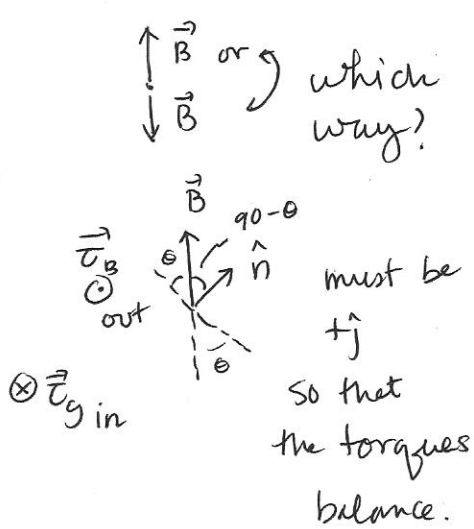 B⃗ or
B⃗
which
way?
B⃗
90-θ
θ
n̂
τ⃗_B
⊙
out
θ
⊗ τ⃗_g in
must be
+ĵ
so that
the torques
balance.